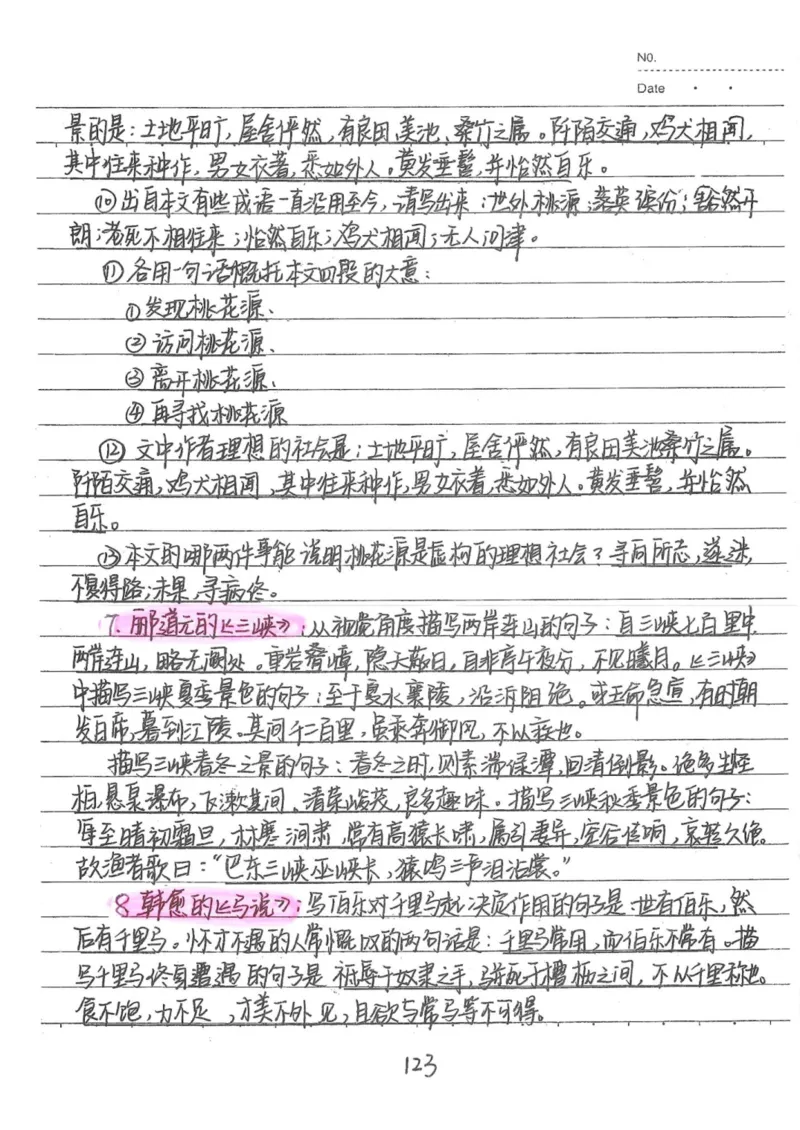 No.
Date
景的是：土地平旷，屋舍俨然，有良田、美池、桑竹之属。阡陌交通，鸡犬相闻，
其中往来种作，男女衣著，悉如外人。黄发垂髫，并怡然自乐。
⑩出自本文有些成语一直沿用至今，请写出来：世外桃源；落英缤纷；豁然开
朗；老死不相往来；怡然自乐；鸡犬相闻；无人问津。
⑪各用一句话概括本文四段的大意：
①发现桃花源、
②访问桃花源、
③离开桃花源、
④再寻找桃花源
⑫文中作者理想的社会是：土地平旷，屋舍俨然，有良田美池桑竹之属。
阡陌交通，鸡犬相闻，其中往来种作，男女衣著，悉如外人。黄发垂髫，并怡然
自乐。
⑬本文的哪两件事能说明桃花源是虚构的理想社会？寻向所志，遂迷，
不复得路；未果，寻病终。
7.郦道元的《三峡》：从视觉角度描写两岸连山的句子：自三峡七百里中，
两岸连山，略无阙处。重岩叠嶂，隐天蔽日，自非亭午夜分，不见曦月。《三峡》
中描写三峡夏季景色的句子：至于夏水襄陵，沿泝阻绝。或王命急宣，有时朝
发白帝，暮到江陵。其间千二百里，虽乘奔御风，不以疾也。
描写三峡春冬之景的句子：春冬之时，则素湍绿潭，回清倒影。绝多生怪
柏，悬泉瀑布，飞漱其间，清荣峻茂，良多趣味。描写三峡秋季景色的句子：
每至晴初霜旦，林寒涧肃，常有高猿长啸，属引凄异，空谷传响，哀转久绝。
故渔者歌曰：“巴东三峡巫峡长，猿鸣三声泪沾裳。”
8.韩愈的《马说》：写伯乐对千里马起决定作用的句子是：世有伯乐，然
后有千里马。怀才不遇的人常慨叹的两句话是：千里马常用，而伯乐不常有。描
写千里马终身遭遇的句子是 祗辱于奴隶之手，骈死于槽枥之间，不以千里称也。
食不饱，力不足，才美不外见，且欲与常马等不可得。
123